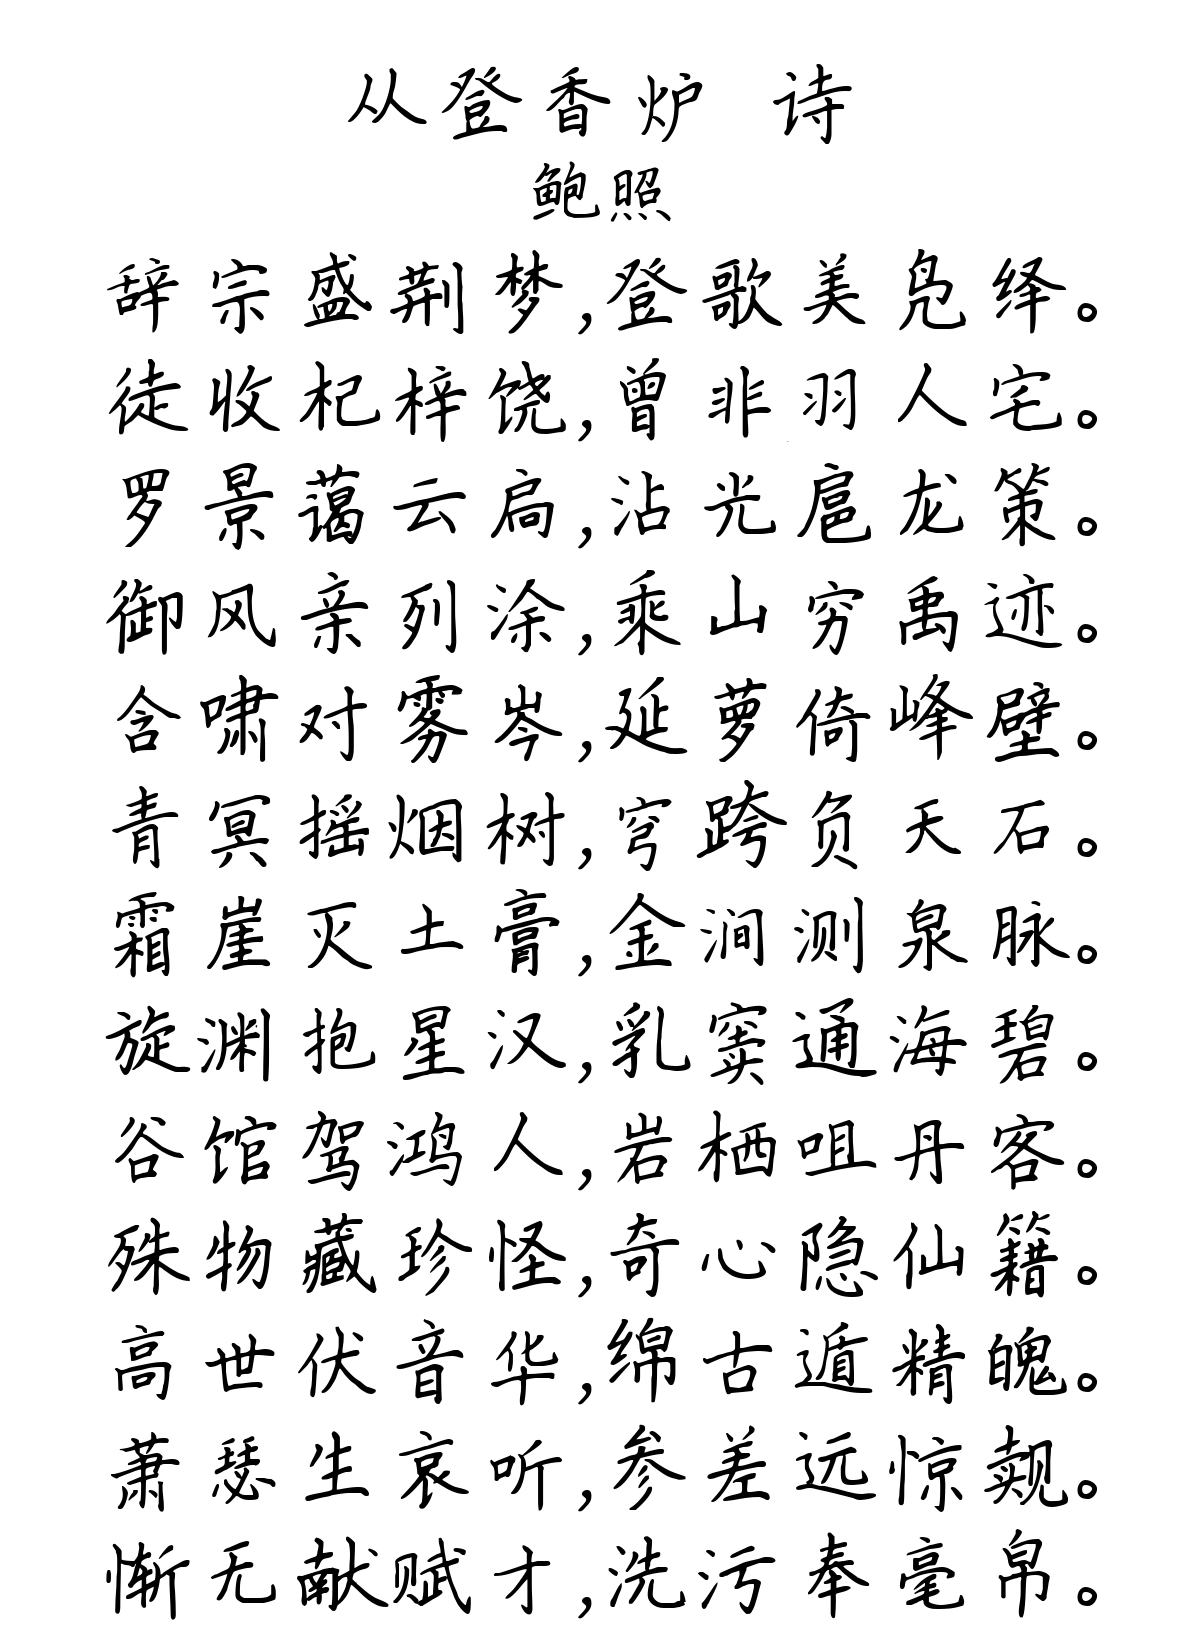 从登香炉 诗
鲍照
辞宗盛荆梦,登歌美凫绎。
徒收杞梓饶,曾非羽人宅。
罗景蔼云扃,沾光扈龙策。
御风亲列涂,乘山穷禹迹。
含啸对雾岑,延萝倚峰壁。
青冥摇烟树,穹跨负天石。
霜崖灭土膏,金涧测泉脉。
旋渊抱星汉,乳窦通海碧。
谷馆驾鸿人,岩栖咀丹客。
殊物藏珍怪,奇心隐仙籍。
高世伏音华,绵古遁精魄。
萧瑟生哀听,参差远惊觌。
惭无献赋才,洗污奉毫帛。